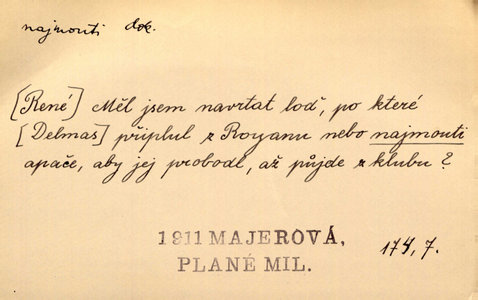 najmouti dok.
[René] Měl jsem navrtat loď, po které
[Delmas] připlul z Royanu nebo najmouti
apače, aby jej probodl, až půjde z klubu?
1911 MAJEROVÁ,
PLANÉ MIL.
174, 7.